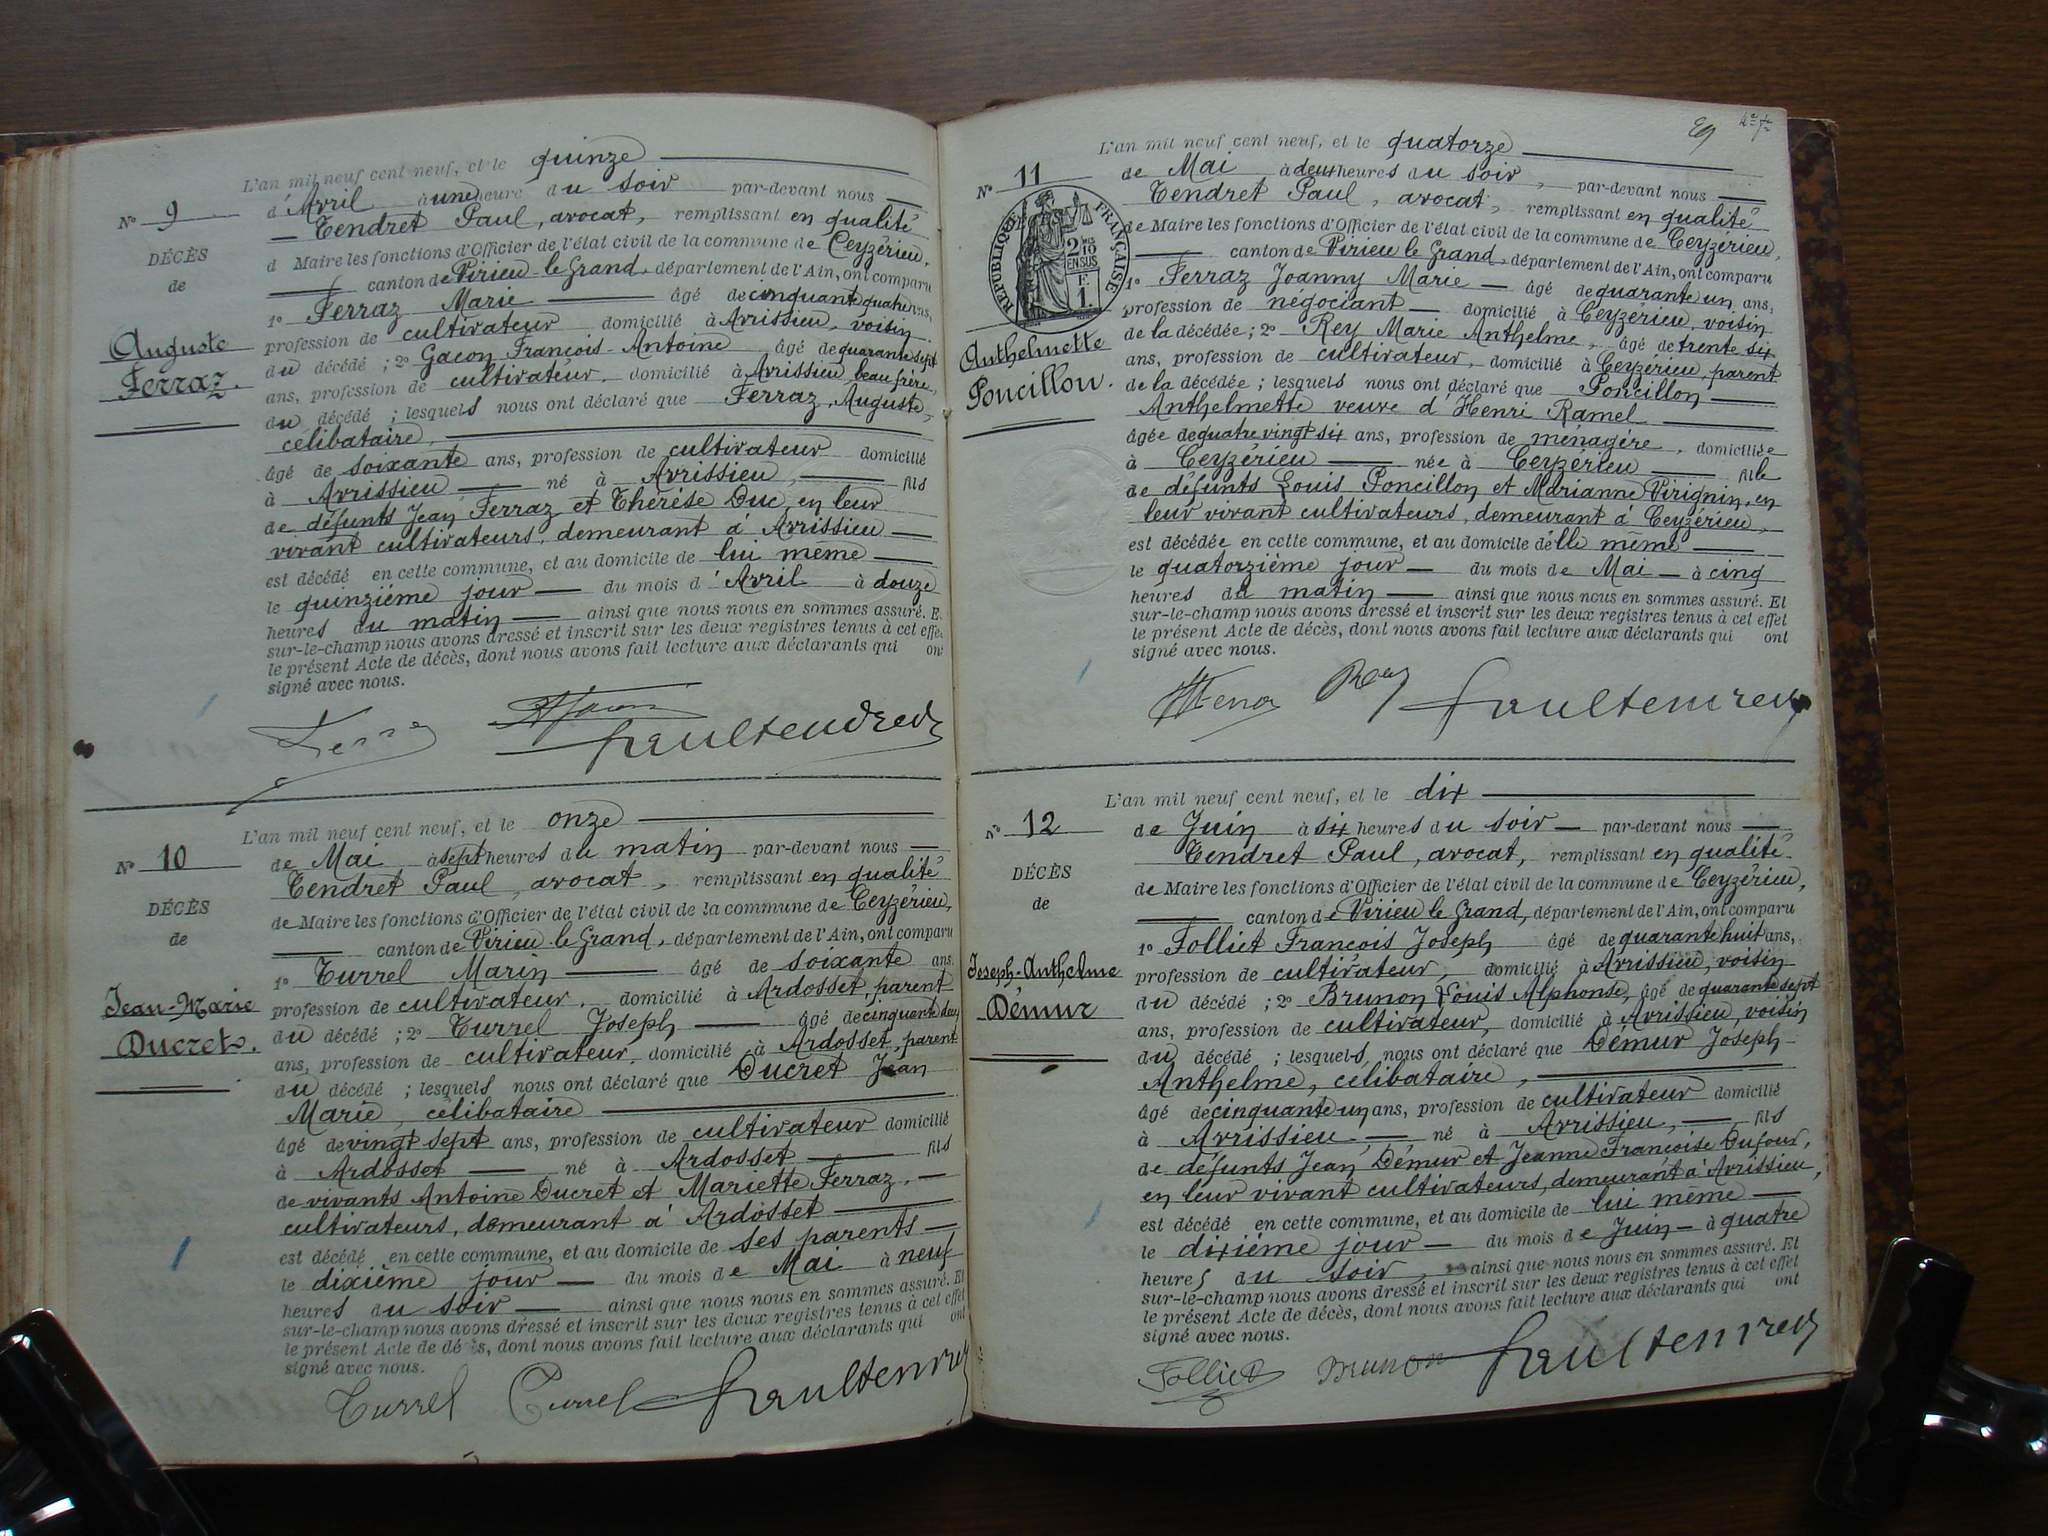 L'an mil neuf cent neuf, et le quinze
d'Avril à une heure du soir par-devant nous
Nº 9
Tendret Paul, avocat, remplissant en qualité
DÉCÈS
de
d Maire les fonctions d'Officier de l'état civil de la commune de Ceyzérieu,
canton de Virieu-le-Grand, département de l'Ain, ont comparu
1º Ferraz Marie âgé de cinquante quatre ans,
profession de cultivateur domicilié à Avrissieu, voisin
Auguste
Ferraz.
du décédé ; 2º Gacon François-Antoine âgé de quarante sept
ans, profession de cultivateur, domicilié à Avrissieu, beau frère,
du décédé ; lesquels nous ont déclaré que Ferraz, Auguste,
célibataire,
âgé de soixante ans, profession de cultivateur domicilié
à Avrissieu né à Avrissieu, fils
de défunts Jean Ferraz et Thérèse Duc, en leur
vivant cultivateurs, demeurant à Avrissieu
est décédé en cette commune, et au domicile de lui même
le quinzième jour du mois d'Avril à douze
heures du matin ainsi que nous nous en sommes assuré. E
sur-le-champ nous avons dressé et inscrit sur les deux registres tenus à cet effe
le présent Acte de décès, dont nous avons fait lecture aux déclarants qui on
signé avec nous.
Paul Tendret
L'an mil neuf cent neuf, et le onze
Nº 10
de Mai à sept heures du matin par-devant nous
Tendret Paul, avocat, remplissant en qualité
DÉCÈS
de
de Maire les fonctions d'Officier de l'état civil de la commune de Ceyzérieu,
canton de Virieu-le-Grand, département de l'Ain, ont comparu
1º Turrel Marin âgé de soixante ans
Jean-Marie
Ducret.
profession de cultivateur, domicilié à Ardosset, parent
du décédé ; 2º Turrel Joseph âgé de cinquante deux
ans, profession de cultivateur, domicilié à Ardosset, parent
du décédé ; lesquels nous ont déclaré que Ducret Jean
Marie, célibataire
âgé de vingt sept ans, profession de cultivateur domicilié
à Ardosset né à Ardosset fils
de vivants Antoine Ducret et Mariette Ferraz,
cultivateurs, demeurant à Ardosset
est décédé en cette commune, et au domicile de ses parents
le dixième jour du mois de Mai à neuf
heures du soir ainsi que nous nous en sommes assuré. Et
sur-le-champ nous avons dressé et inscrit sur les deux registres tenus à cet effet
le présent Acte de décès, dont nous avons fait lecture aux déclarants qui ont
signé avec nous.
Turrel Turrel Paul Tendret
29
L'an mil neuf cent neuf, et le quatorze
Nº 11
de Mai à deux heures du soir, par-devant nous
RÉPUBLIQUE FRANÇAISE
2 DMES 10 EN SUS
F.
1.
Tendret Paul, avocat, remplissant en qualité
de Maire les fonctions d'Officier de l'état civil de la commune de Ceyzérieu,
canton de Virieu le Grand, département de l'Ain, ont comparu
1º Ferraz Joanny Marie âgé de quarante un ans,
profession de négociant domicilié à Ceyzérieu, voisin
Anthelmette
Poncillon.
de la décédée ; 2º Rey Marie Anthelme, âgé de trente six
ans, profession de cultivateur, domicilié à Ceyzérieu, parent
de la décédée ; lesquels nous ont déclaré que Poncillon
Anthelmette veuve d'Henri Ramel
âgée de quatre vingt six ans, profession de ménagère, domiciliée
à Ceyzérieu née à Ceyzérieu fille
de défunts Louis Poncillon et Marianne Virignin, en
leur vivant cultivateurs, demeurant à Ceyzérieu,
est décédée en cette commune, et au domicile d'elle même
le quatorzième jour du mois de Mai à cinq
heures du matin ainsi que nous nous en sommes assuré. Et
sur-le-champ nous avons dressé et inscrit sur les deux registres tenus à cet effet
le présent Acte de décès, dont nous avons fait lecture aux déclarants qui ont
signé avec nous.
Rey Paul Tendret
L'an mil neuf cent neuf, et le dix
Nº 12
de Juin à six heures du soir par-devant nous
Tendret Paul, avocat, remplissant en qualité
DÉCÈS
de
de Maire les fonctions d'Officier de l'état civil de la commune de Ceyzérieu,
canton de Virieu le Grand, département de l'Ain, ont comparu
1º Folliet François Joseph âgé de quarante huit ans,
Joseph-Anthelme
Démur
profession de cultivateur, domicilié à Avrissieu, voisin
du décédé ; 2º Brunon Louis Alphonse, âgé de quarante sept
ans, profession de cultivateur, domicilié à Avrissieu, voisin
du décédé ; lesquels nous ont déclaré que Démur Joseph
Anthelme, célibataire,
âgé de cinquante un ans, profession de cultivateur domicilié
à Avrissieu né à Avrissieu, fils
de défunts Jean Démur et Jeanne Françoise Dufour,
en leur vivant cultivateurs, demeurant à Avrissieu,
est décédé en cette commune, et au domicile de lui même
le dixième jour du mois de Juin à quatre
heures du soir, ainsi que nous nous en sommes assuré. Et
sur-le-champ nous avons dressé et inscrit sur les deux registres tenus à cet effet
le présent Acte de décès, dont nous avons fait lecture aux déclarants qui ont
signé avec nous.
Folliet Brunon Paul Tendret